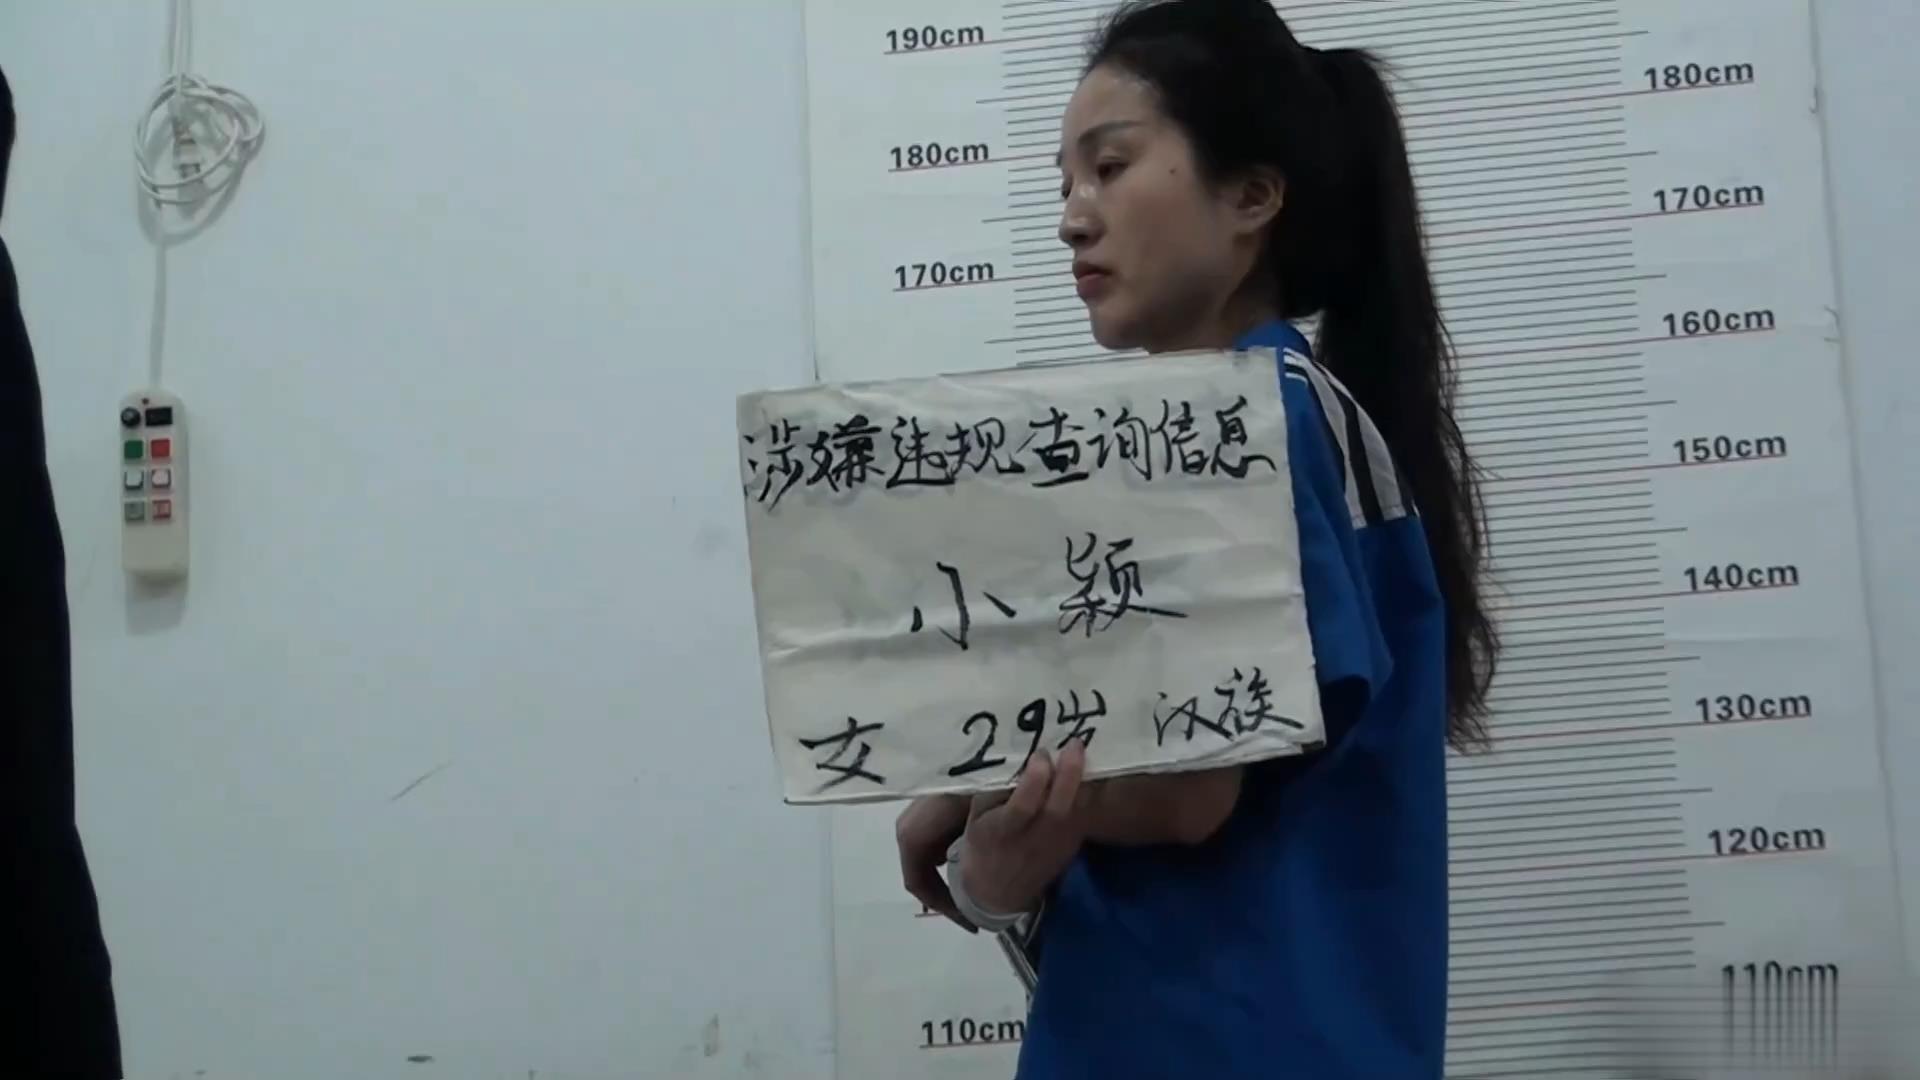 190cm
180cm
180cm
170cm
170cm
160cm
涉嫌违规查询信息
150cm
小颖
140cm
女 29岁 汉族
130cm
120cm
110cm
110cm